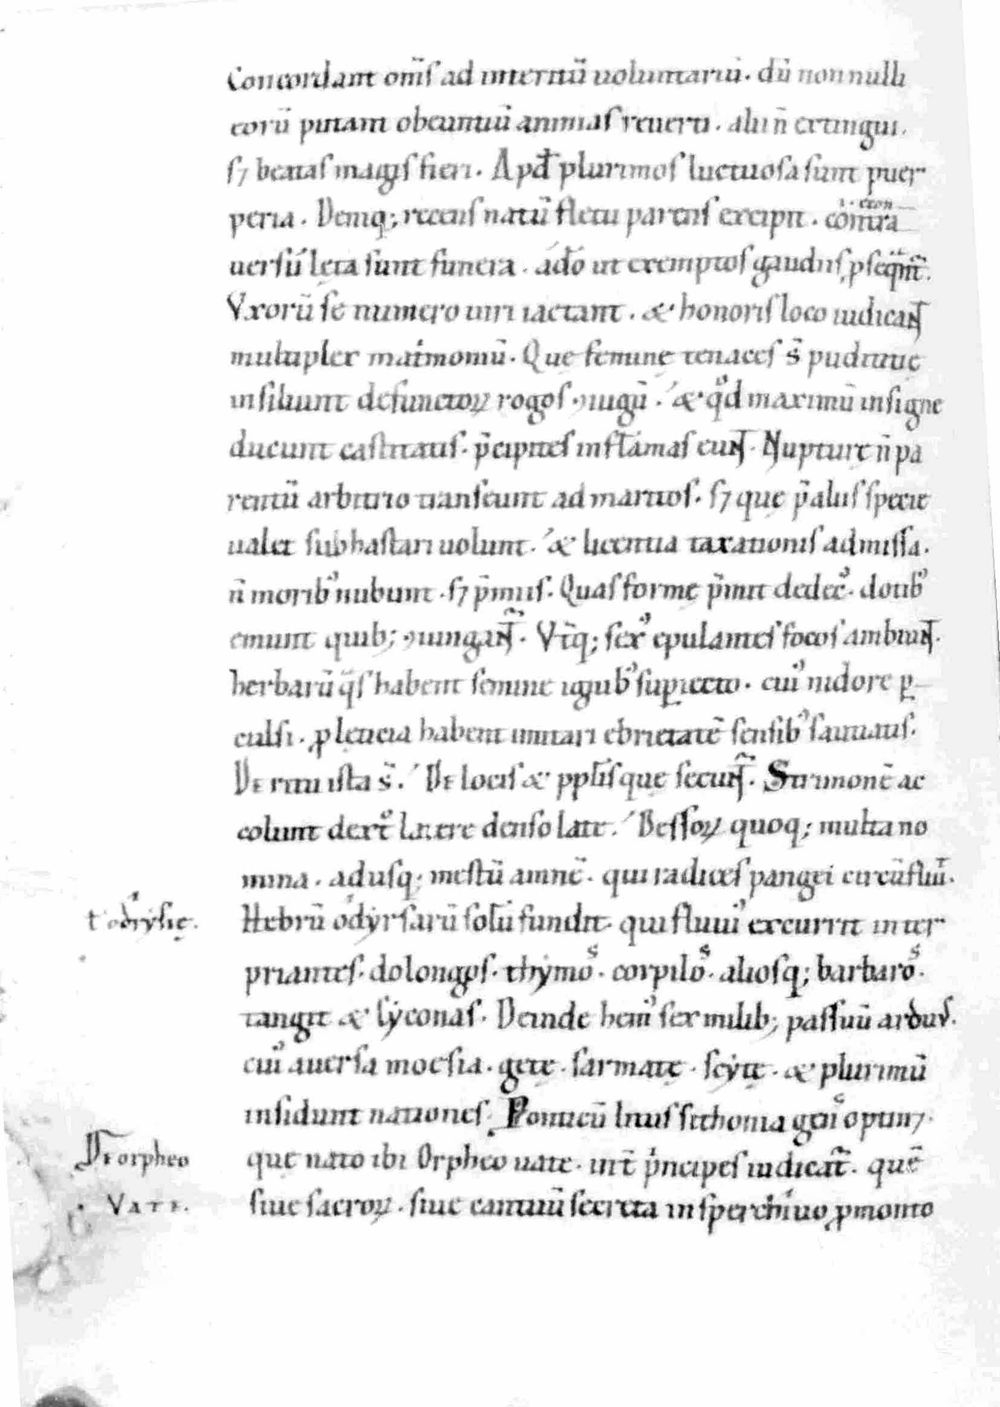 Concordant om̄s ad interitū uoluntariū. dū non nulli
eorū putant obeuntiū animas reuerti. alii n̄ extingui.
s; beatas magis fieri. Apđ plurimos luctuosa sunt puer
peria. Deniq; recens natū fletu parens excipit. cōntra
uersū lęta sunt funera. adō ut exemptos gaudiis ꝓseq̄nt̄.
Vxorū se numero uiri iactant. & honoris loco iudicant̄
multiplex mat̄moniū. Que femine tenaces s̄ pudicitie
insiliunt defunctoꝝ rogos ꝯiugū. & qd̓ maximū insigne
ducunt castitatis. p̄cipites in flāmas eunt̄. Nupture n̄ pa
rentū arbitrio transeunt ad maritos. s; que p̄ aliis specie
ualet subhastari uolunt. & licentia taxationis admissa.
n̄ morib; nubunt. s; p̄miis. Quas forme p̄mit dedec̓. dotib;
emunt quib; ꝯiungant̄. Vt̄q; sex̓ epulantes focos ambiunt̄.
herbarū q̄s habent semine ignib; supiecto. cui̓ nidore ꝑ
culsi. ꝓ lęticia habent imitari ebrietatē sensib; sauciatis.
De ritu ista s̄. De locis & pplīs que secunt̄. Strimonē ac
colunt dext̄ latere denso late. Bessoꝝ quoq; multa no
mina. ad usq; mestū amnē. qui radices pangei circūfluit̄.
t odrysię. Hebrū odyrsarū solū fundit. qui fluui̓ excurrit inter
priantes. dolongos. thymos. corpilos. aliosq; barbaros.
tangit & lyconas. Deinde hemi̓ sex milib; passuū arduus.
cui̓ auersa moesia. gete. sarmate. scyte. & plurimū
insidunt nationes. Ponticū litus sithonia gens optinꝫ.
De orpheo que nato ibi Orpheo uate. int̄ p̄ncipes iudicat̄. quē
Vate. siue sacroꝝ. siue cantuū secreta in sperchiuo ꝓmonto